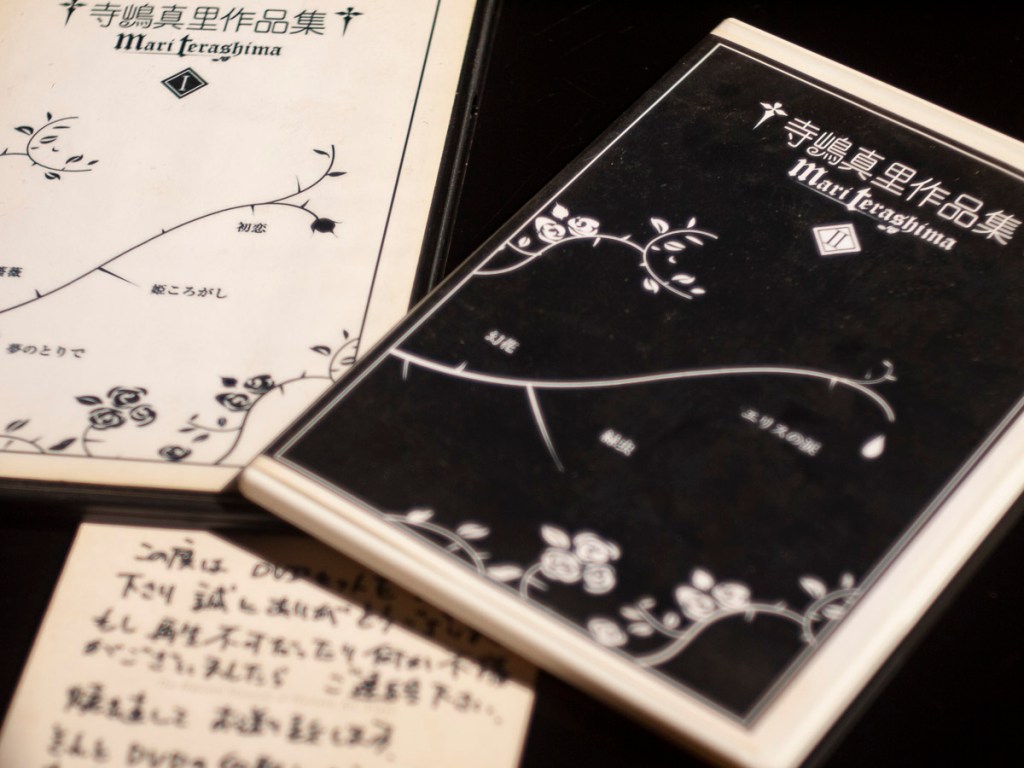 寺嶋真里作品集
Mari terashima
I
初恋
薔薇
姫ころがし
夢のとりで
寺嶋真里作品集
Mari terashima
II
幻花
エリスの涙
緑虫
この度は DVDセットを
下さり 誠にありがとうございます
もし再生不可だったり何か不備
がございましたら ご連絡下さい。